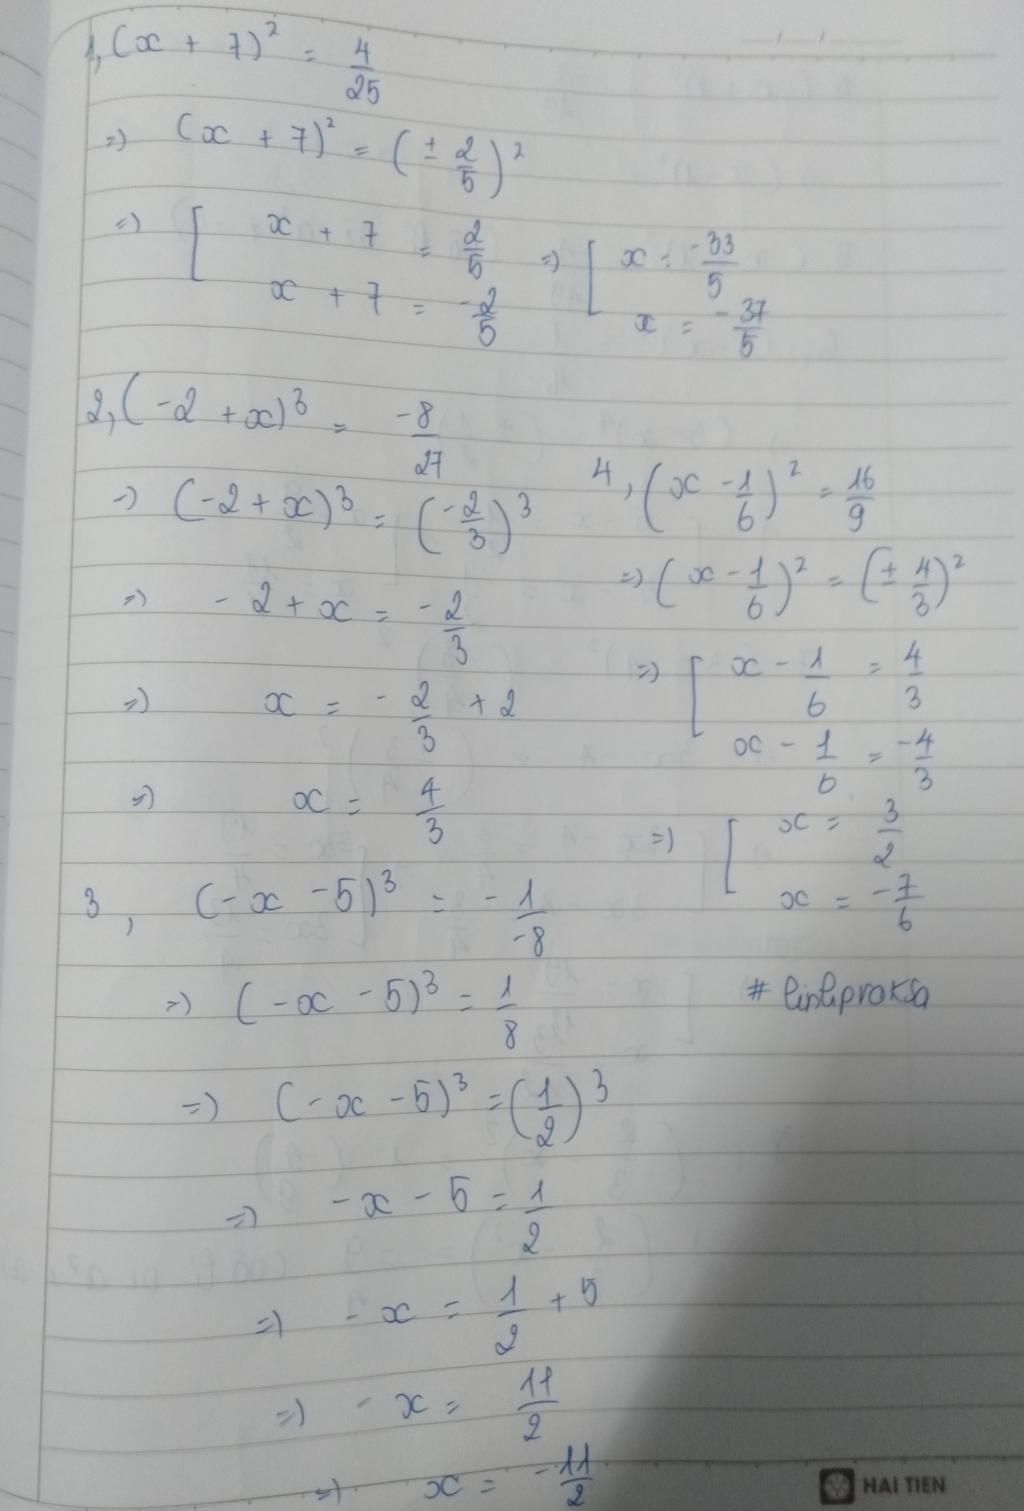 1, (x + 7)² = 4/25
=> (x + 7)² = (± 2/5)²
=> [ x + 7 = 2/5 => [ x = -33/5
x + 7 = -2/5 x = -37/5
2, (-2 + x)³ = -8/27
=> (-2 + x)³ = (-2/3)³
=> -2 + x = -2/3
=> x = -2/3 + 2
=> x = 4/3
3, (-x - 5)³ = -1/-8
=> (-x - 5)³ = 1/8
=> (-x - 5)³ = (1/2)³
=> -x - 5 = 1/2
=> -x = 1/2 + 5
=> -x = 11/2
=> x = -11/2
4, (x - 1/6)² = 16/9
=> (x - 1/6)² = (± 4/3)²
=> [ x - 1/6 = 4/3
x - 1/6 = -4/3
=> [ x = 3/2
x = -7/6
HAI TIEN